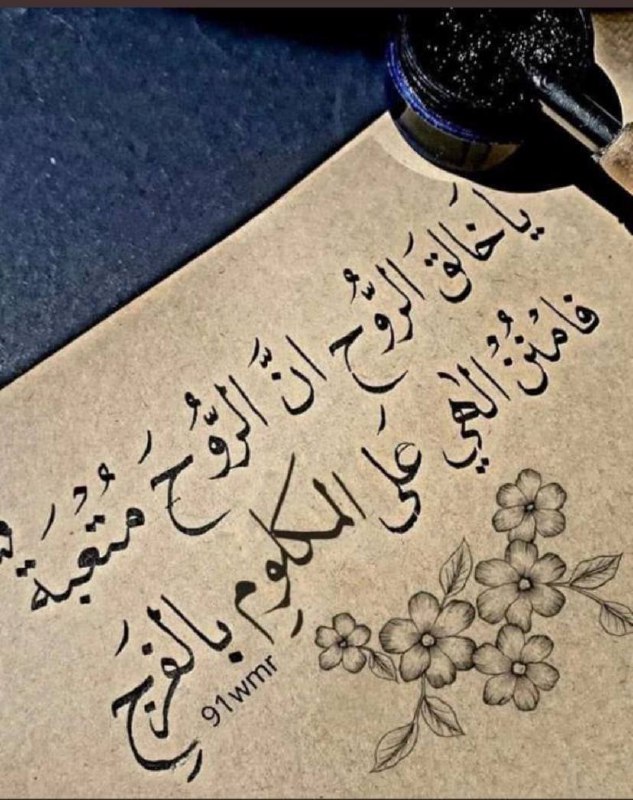 يا خَالقَ الرُّوحِ انَّ الرُّوحَ مُتْعَبَة
فامْنُنُ الهَي عَلى المكلومِ بالفَرج
91wmr